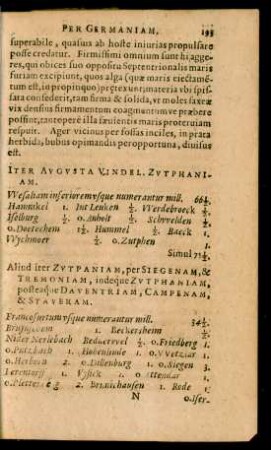 PER GERMANIAM. 193
superabile, quasuis ab hoste iniurias propulsare
posse credatur. Firmissimi omnium sunt hi agge-
res, qui obices suo oppositu Septentrionalis maris
furiam excipiunt, quos alga (quæ maris eiectamē-
tum est, in propinquo) prætexunt, materia vbi spis-
sata consederit, tam firma & solida, vt moles saxeæ
vix densius firmamentum coagmentumve præbere
possint, tantopere illa fæuientis maris proteruiam
respuit. Ager vicinus per fossas inciles, in prata
herbida, bubus opimandis peropportuna, diuisus
est.
ITER AVGVSTA VINDEL. ZVTPHANI-
AM.
Wesaliam inferiorem vsque numerantur mill. 66½.
Hammikel 1. Int Lenken ½. Werdebroeck ½.
Iselburg ½. o. Anholt ½. Schervelden ½.
o. Doetechem 1½. Hummel ½. Baeck 1.
Wychmoer ½. o. Zutphen 1.
Simul 73½.
Aliud iter ZVTPANIAM, per SIEGENAM, &
TREMONIAM, indeque ZVTPHANIAM,
posteaque DAVENTRIAM, CAMPENAM,
& STAVERAM.
Francofurtum vsque numerantur mill. 34½.
1. Beckersheim ½.
Nider Nerlebach ½. o. Friedberg 1.
o. Putzbach 1. 1. o. Vvetzlar 1.
o. Herborn 2. o. Dillenburg 1. o. Siegen 3.
1. 1. 1.
2. 1. Rede 1.
N o. Iser-